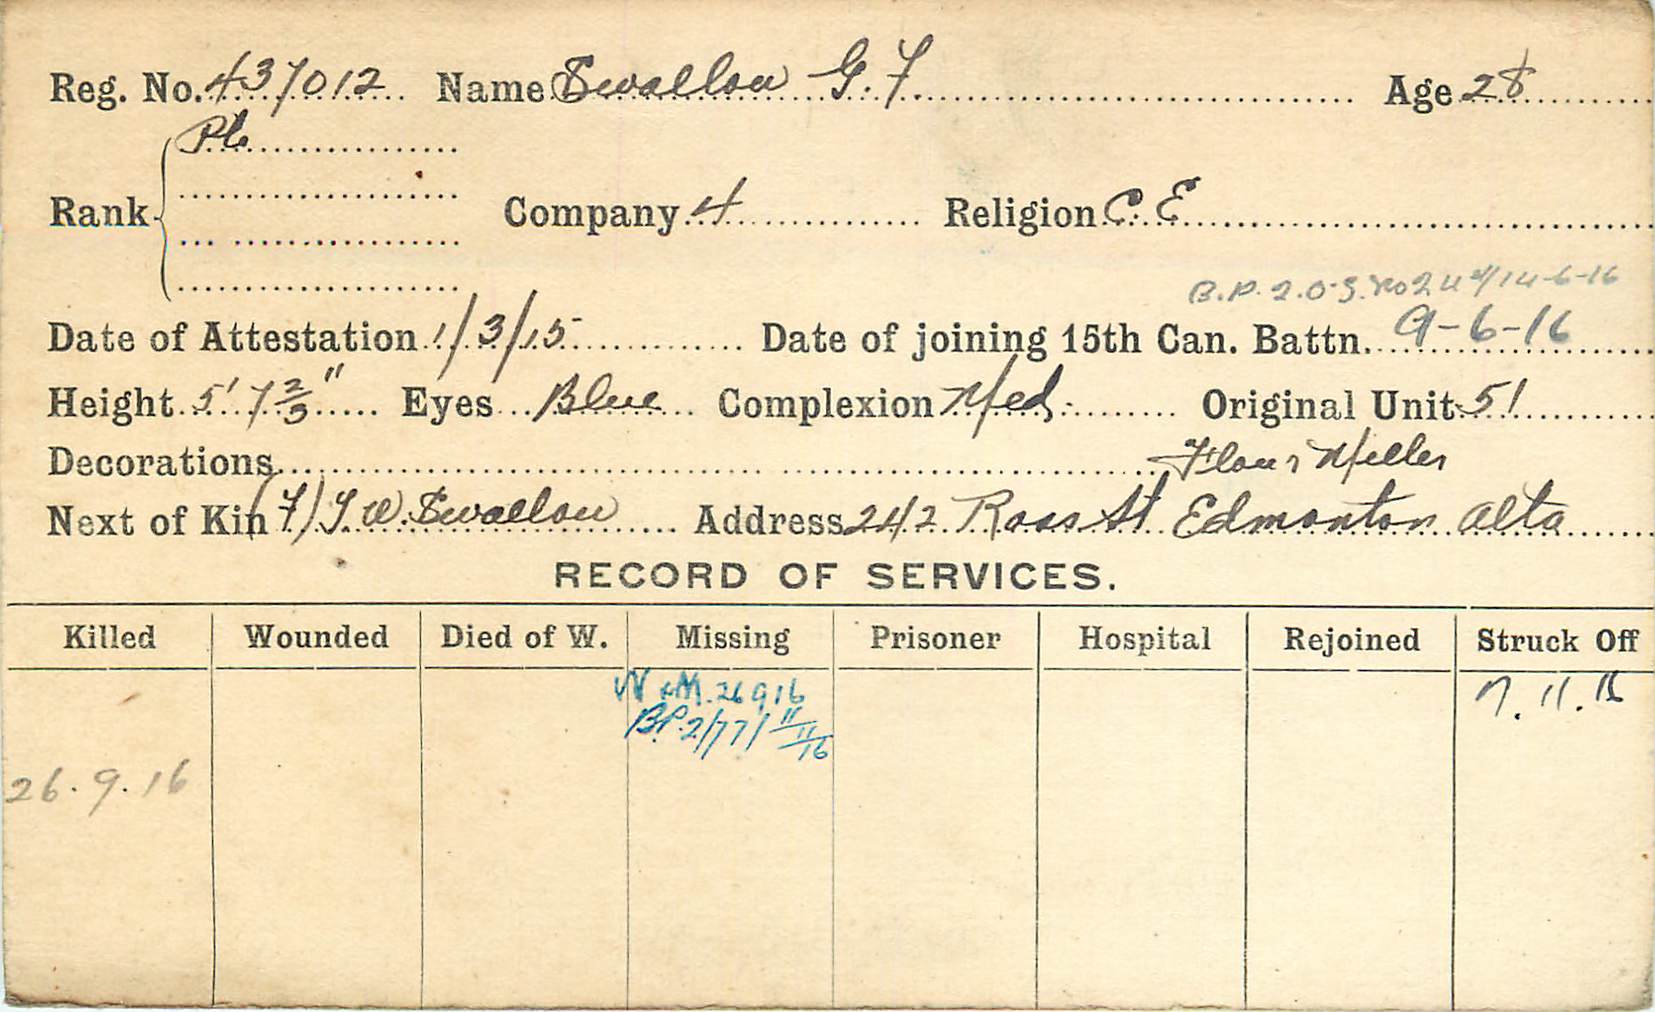 Reg. No. 437012 Name Swallow G. F. Age 28
Pte
Rank Company 4 Religion C. E
B.P. 2. O-S. No 244/14-6-16
Date of Attestation 1/3/15 Date of joining 15th Can. Battn. 9-6-16
Height 5' 7 2/3" Eyes Blue Complexion Med. Original Unit 51
Decorations Flour Miller
Next of Kin (F) T. W. Swallow Address 242 Ross St. Edmonton Alta
RECORD OF SERVICES.
Killed Wounded Died of W. Missing Prisoner Hospital Rejoined Struck Off
W & M. 26 9 16 7. 11. 16
B.P. 2/77/ 11/11/16
26. 9. 16